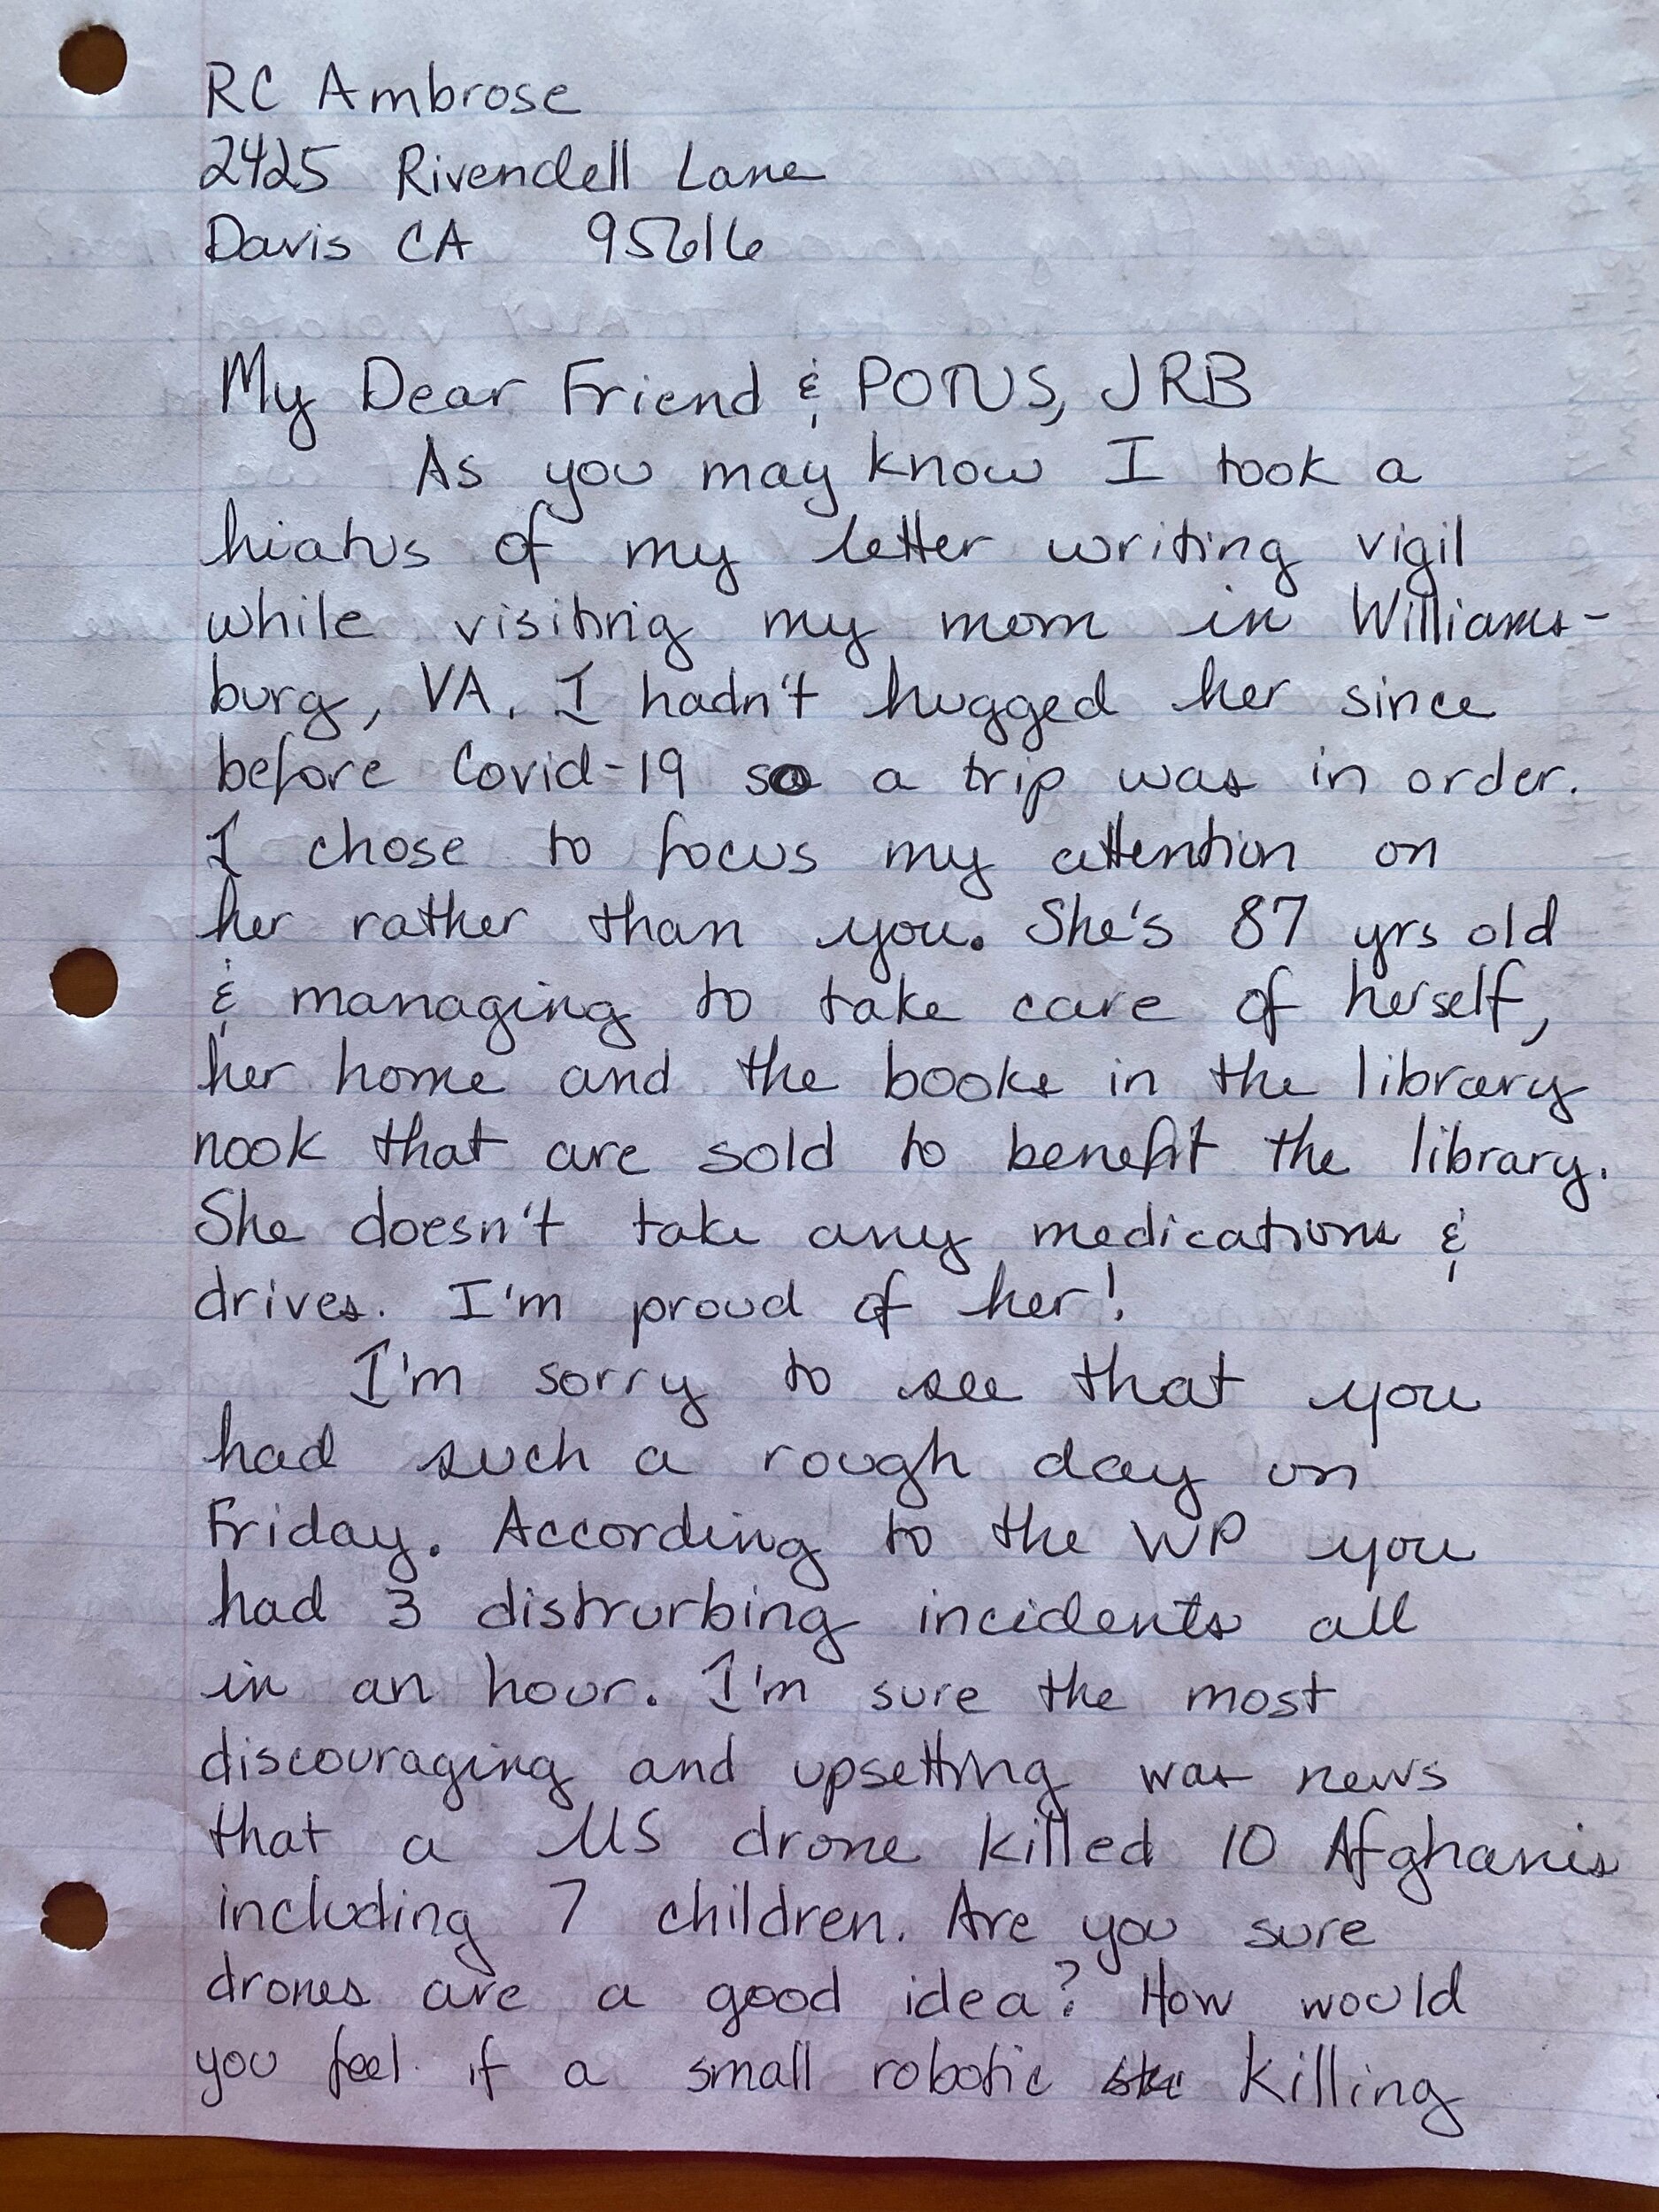 RC Ambrose
2425 Rivendell Lane
Davis CA 95616
My Dear Friend & POTUS, JRB
As you may know I took a
hiatus of my letter writing vigil
while visiting my mom in Williams-
burg, VA. I hadn't hugged her since
before Covid-19 so a trip was in order.
I chose to focus my attention on
her rather than you. She's 87 yrs old
& managing to take care of herself,
her home and the books in the library
nook that are sold to benefit the library.
She doesn't take any medications &
drives. I'm proud of her!
I'm sorry to see that you
had such a rough day on
Friday. According to the WP you
had 3 distrurbing incidents all
in an hour. I'm sure the most
discouraging and upsetting was news
that a US drone killed 10 Afghanis
including 7 children. Are you sure
drones are a good idea? How would
you feel if a small robotic killing